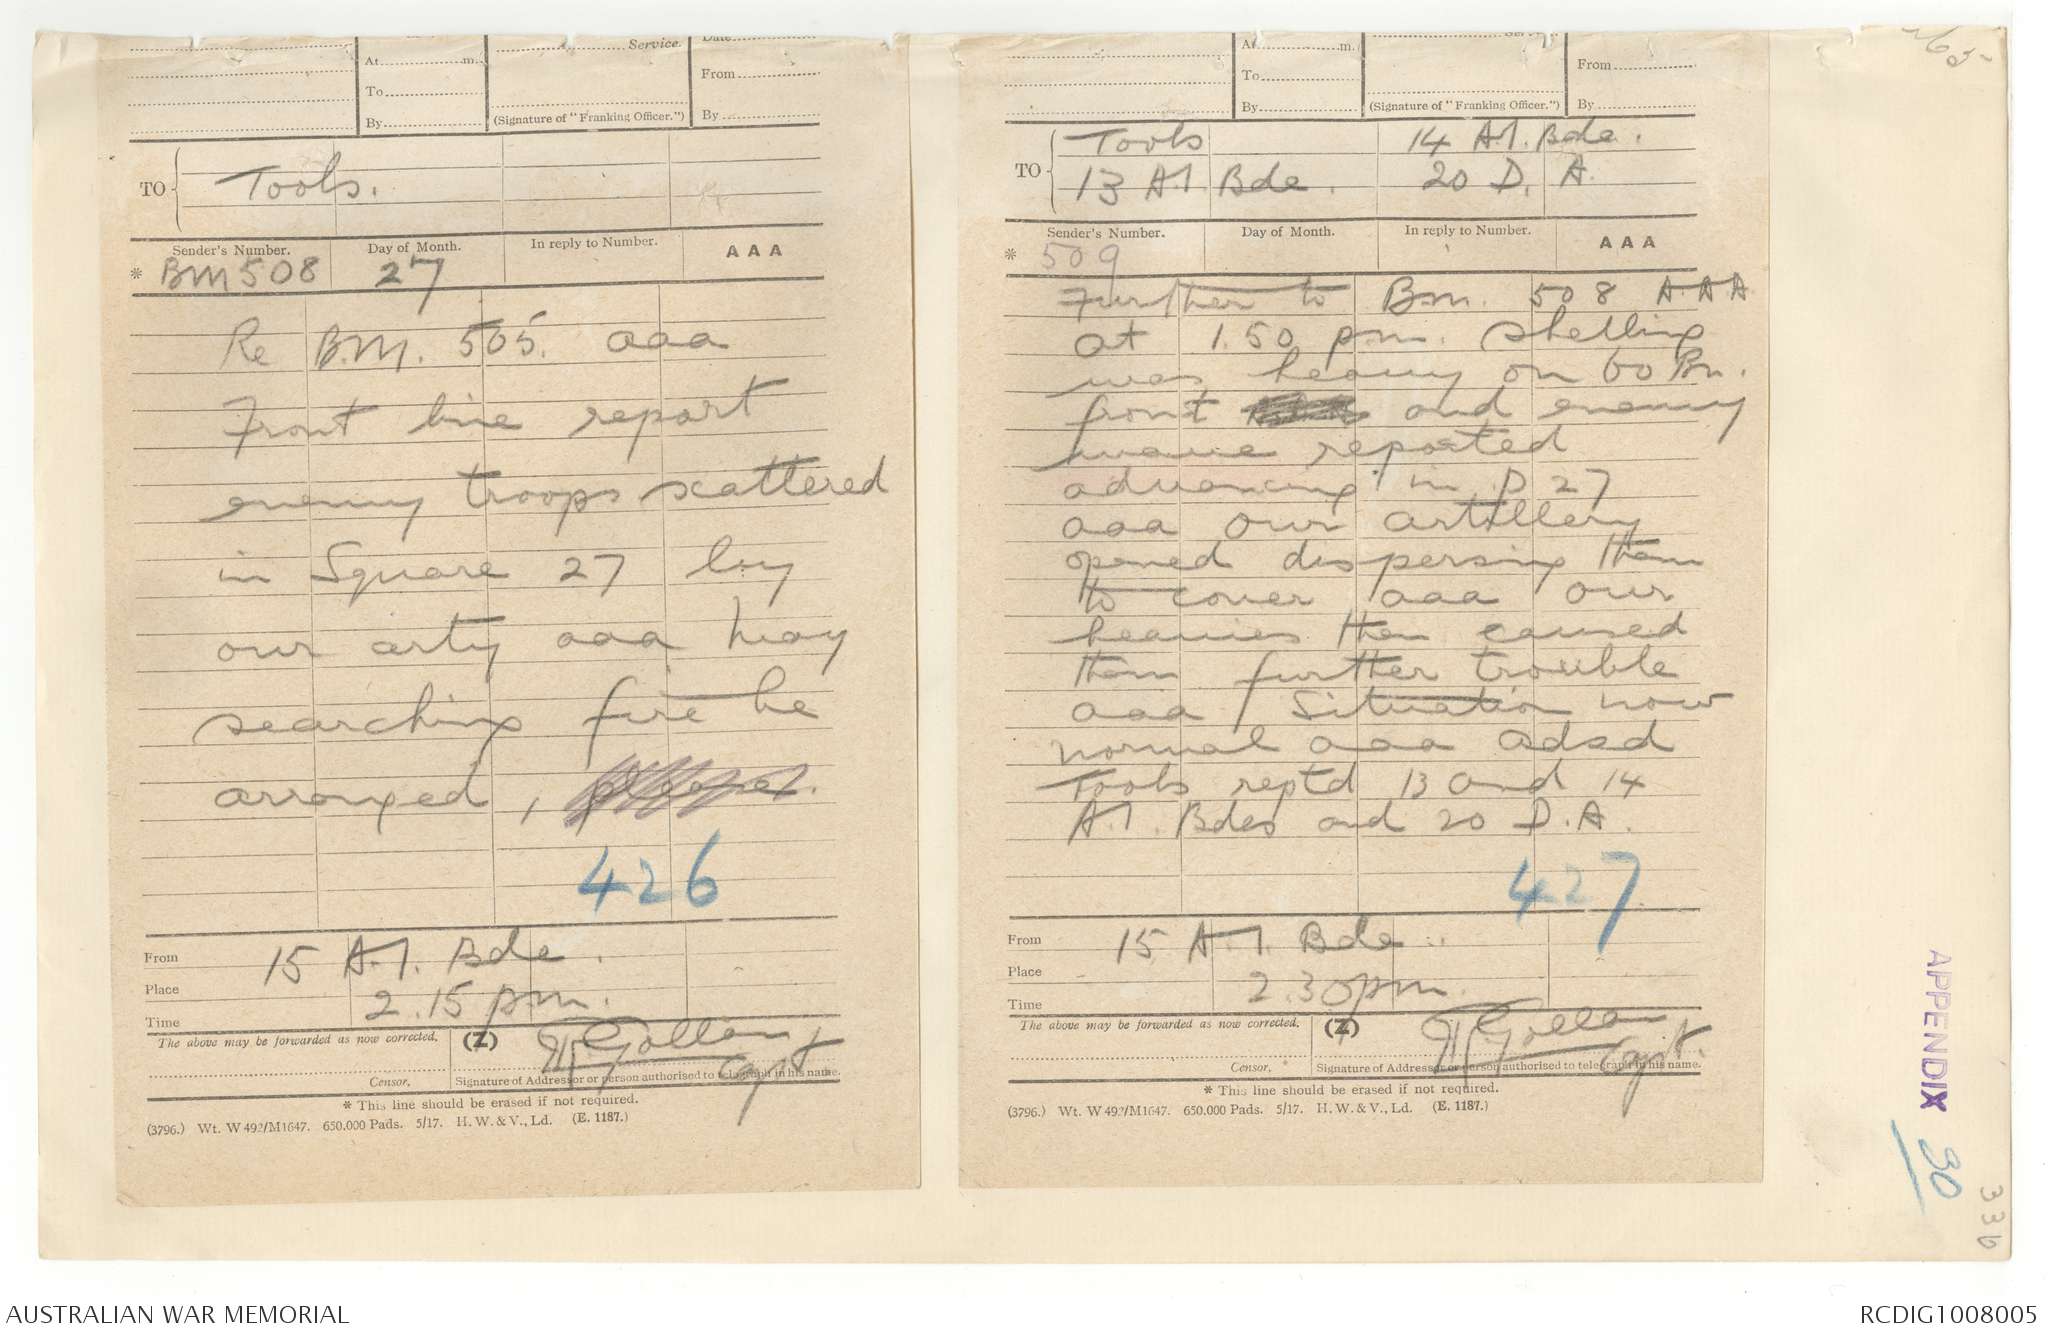 Service.
Date
At m.
From
To
By
(Signature of "Franking Officer.")
By
TO
Tools.
Sender's Number.
Day of Month.
In reply to Number.
AAA
* BM508
27
Re B.M. 505. aaa
Front line report
enemy troops scattered
in Square 27 by
our arty aaa heavy
searching fire be
arranged,
426
From
15 A.I. Bde.
Place
2.15 p.m.
Time
The above may be forwarded as now corrected.
(Z)
Gollan
Capt
Censor.
Signature of Addressor or person authorised to telegraph in his name.
* This line should be erased if not required.
(3796.) Wt. W 492/M1647. 650.000 Pads. 5/17. H. W. & V., Ld. (E. 1187.)
At m.
From
To
By
(Signature of "Franking Officer.")
By
TO
Tools 14 A.I. Bde.
13 A.I. Bde. 20 D. A.
Sender's Number.
Day of Month.
In reply to Number.
AAA
* 509
Further to Bm. 508 AAA
at 1.50 pm. shelling
was heavy on 60 Bn.
front and enemy
wave reported
advancing in P 27
aaa our artillery
opened dispersing them
to cover aaa our
heavies then caused
them further trouble
aaa Situation now
normal aaa adsd
Tools reptd 13 and 14
A.I. Bdes and 20 D.A.
427
From
15 A.I. Bde.
Place
2.30pm.
Time
The above may be forwarded as now corrected.
(Z)
Gollan
Capt.
Censor.
Signature of Addressor or person authorised to telegraph in his name.
* This line should be erased if not required.
(3796.) Wt. W 492/M1647. 650.000 Pads. 5/17. H. W. & V., Ld. (E. 1187.)
APPENDIX 30
336
AUSTRALIAN WAR MEMORIAL
RCDIG1008005